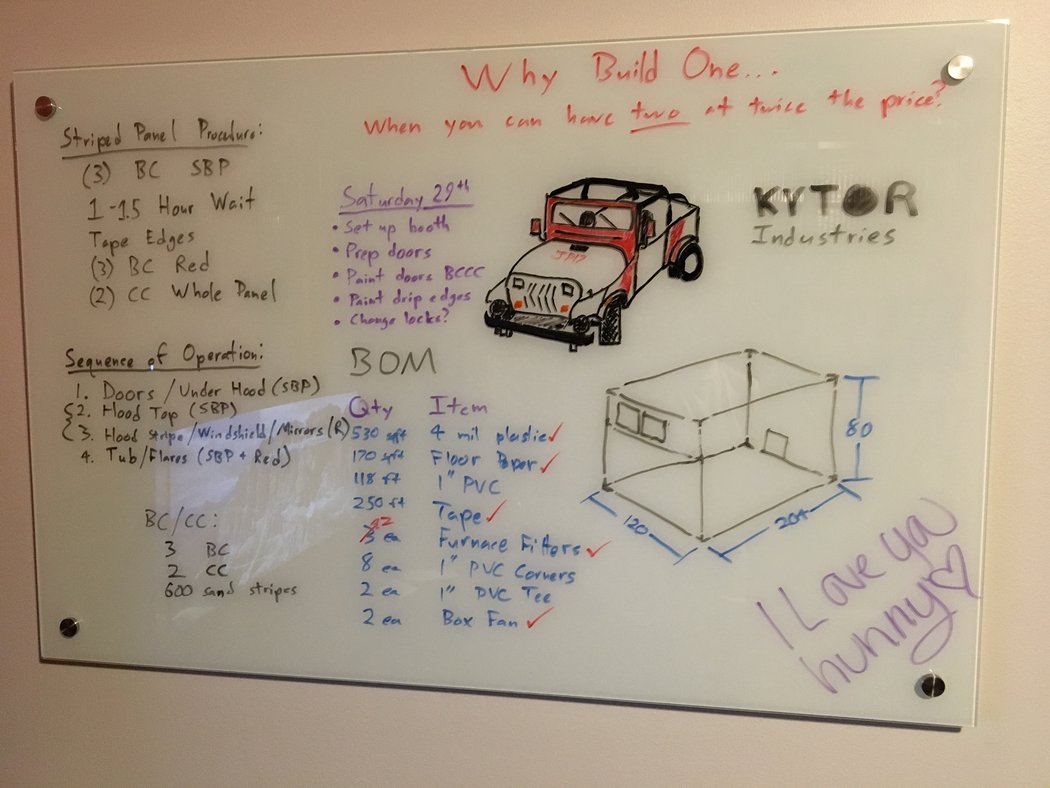 Why Build One...
When you can have two at twice the price?
Striped Panel Procedure:
(3) BC SBP
1-1.5 Hour Wait
Tape Edges
(3) BC Red
(2) CC Whole Panel
Sequence of Operation:
1. Doors/Under Hood (SBP)
2. Hood Top (SBP)
3. Hood Stripe/Windshield/Mirrors (R)
4. Tub/Flares (SBP + Red)
BC/CC:
3 BC
2 CC
600 sand stripes
Saturday 29th
• Set up booth
• Prep doors
• Paint doors BCCC
• Paint drip edges
• Change locks?
BOM
Qty Item
530 sqft 4 mil plastic ✓
170 sqft Floor Paper ✓
118 ft 1" PVC
250 ft Tape ✓
12 ea Furnace Filters ✓
8 ea 1" PVC Corners
2 ea 1" PVC Tee
2 ea Box Fan ✓
KYTOR
Industries
80
120
204
I Love ya
hunny♡